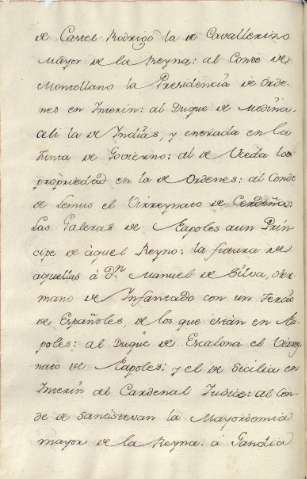 de Castel Rodrigo la de Cavallerizo
mayor de la Reyna: al Conde de
Montellano la Presidencia de Orde-
nes en Interin: al Duque de Medina-
celi la de Indias, y entrada en la
Junta de Govierno: al de Uzeda la
propriedad en la de Ordenes: al Conde
de Lemus el Virreynato de Cerdeña:
las Galeras de Napoles a un Prin-
cipe de aquel Reyno: la futura de
aquellas á Dn. Manuel de Silva, her-
mano de Infantado con un Tercio
de Españoles de los que están en Na-
poles: al Duque de Escalona el Virrey-
nato de Napoles: y el de Sicilia en
Interin al Cardenal Judice: al Con-
de de Santistevan la Mayordomia
mayor de la Reyna: a Gandia